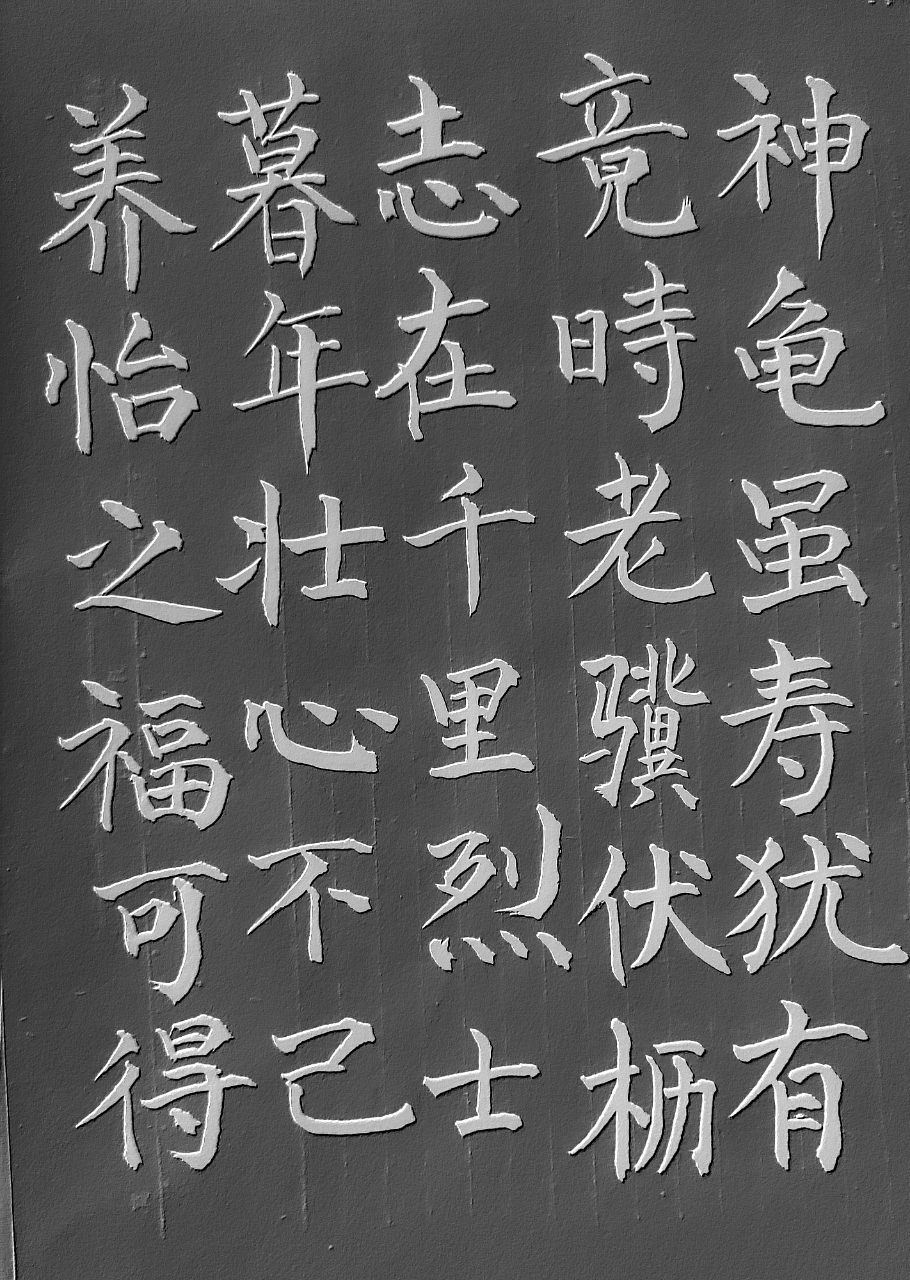 神龟虽寿犹有
竟時老骥伏枥
志在千里烈士
暮年壮心不己
养怡之福可得